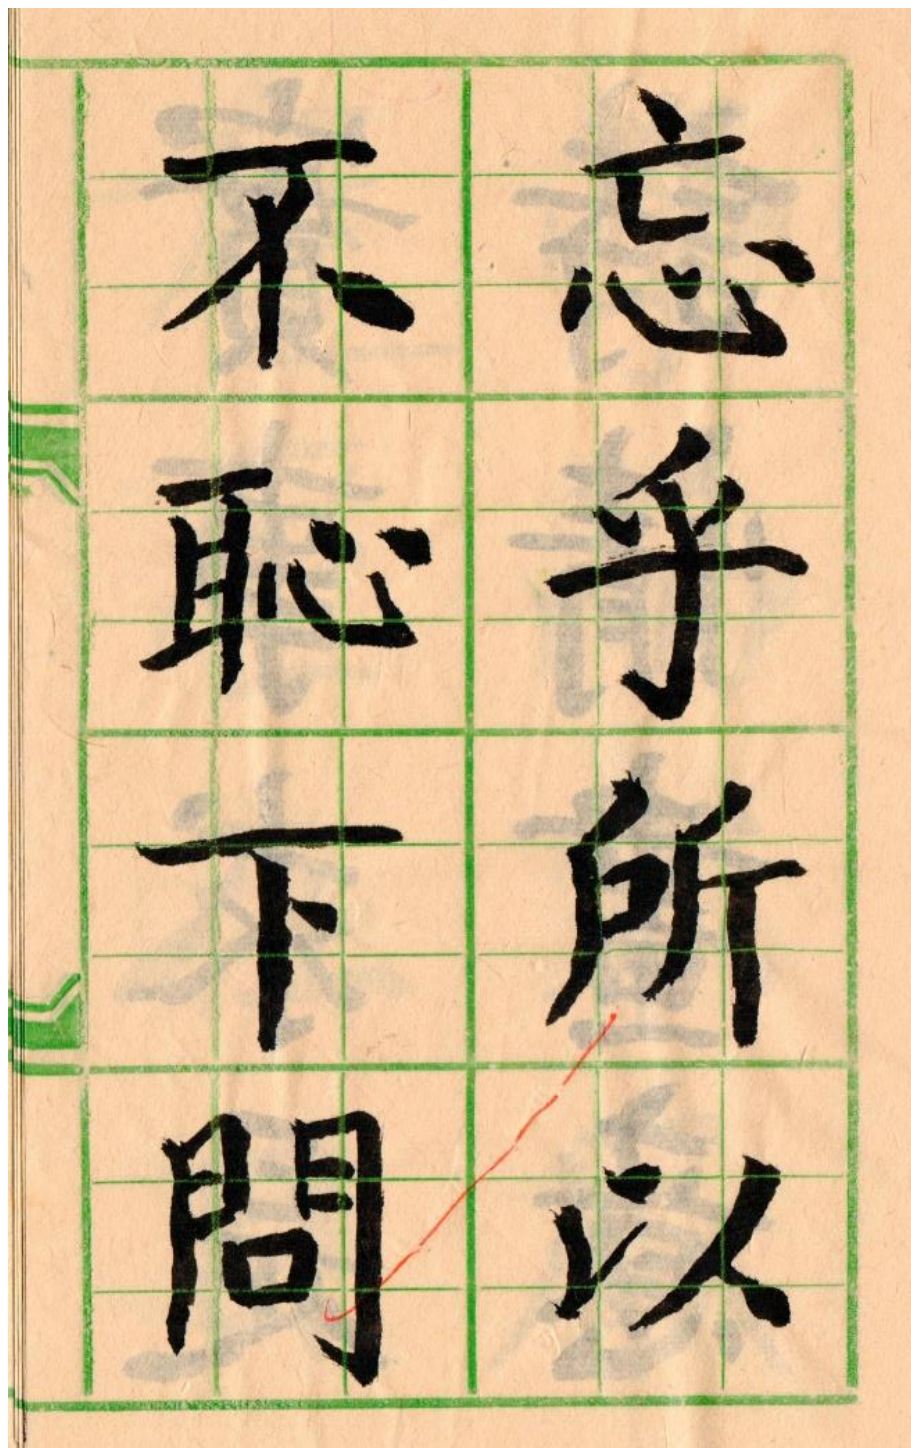 忘乎所以
不恥下問